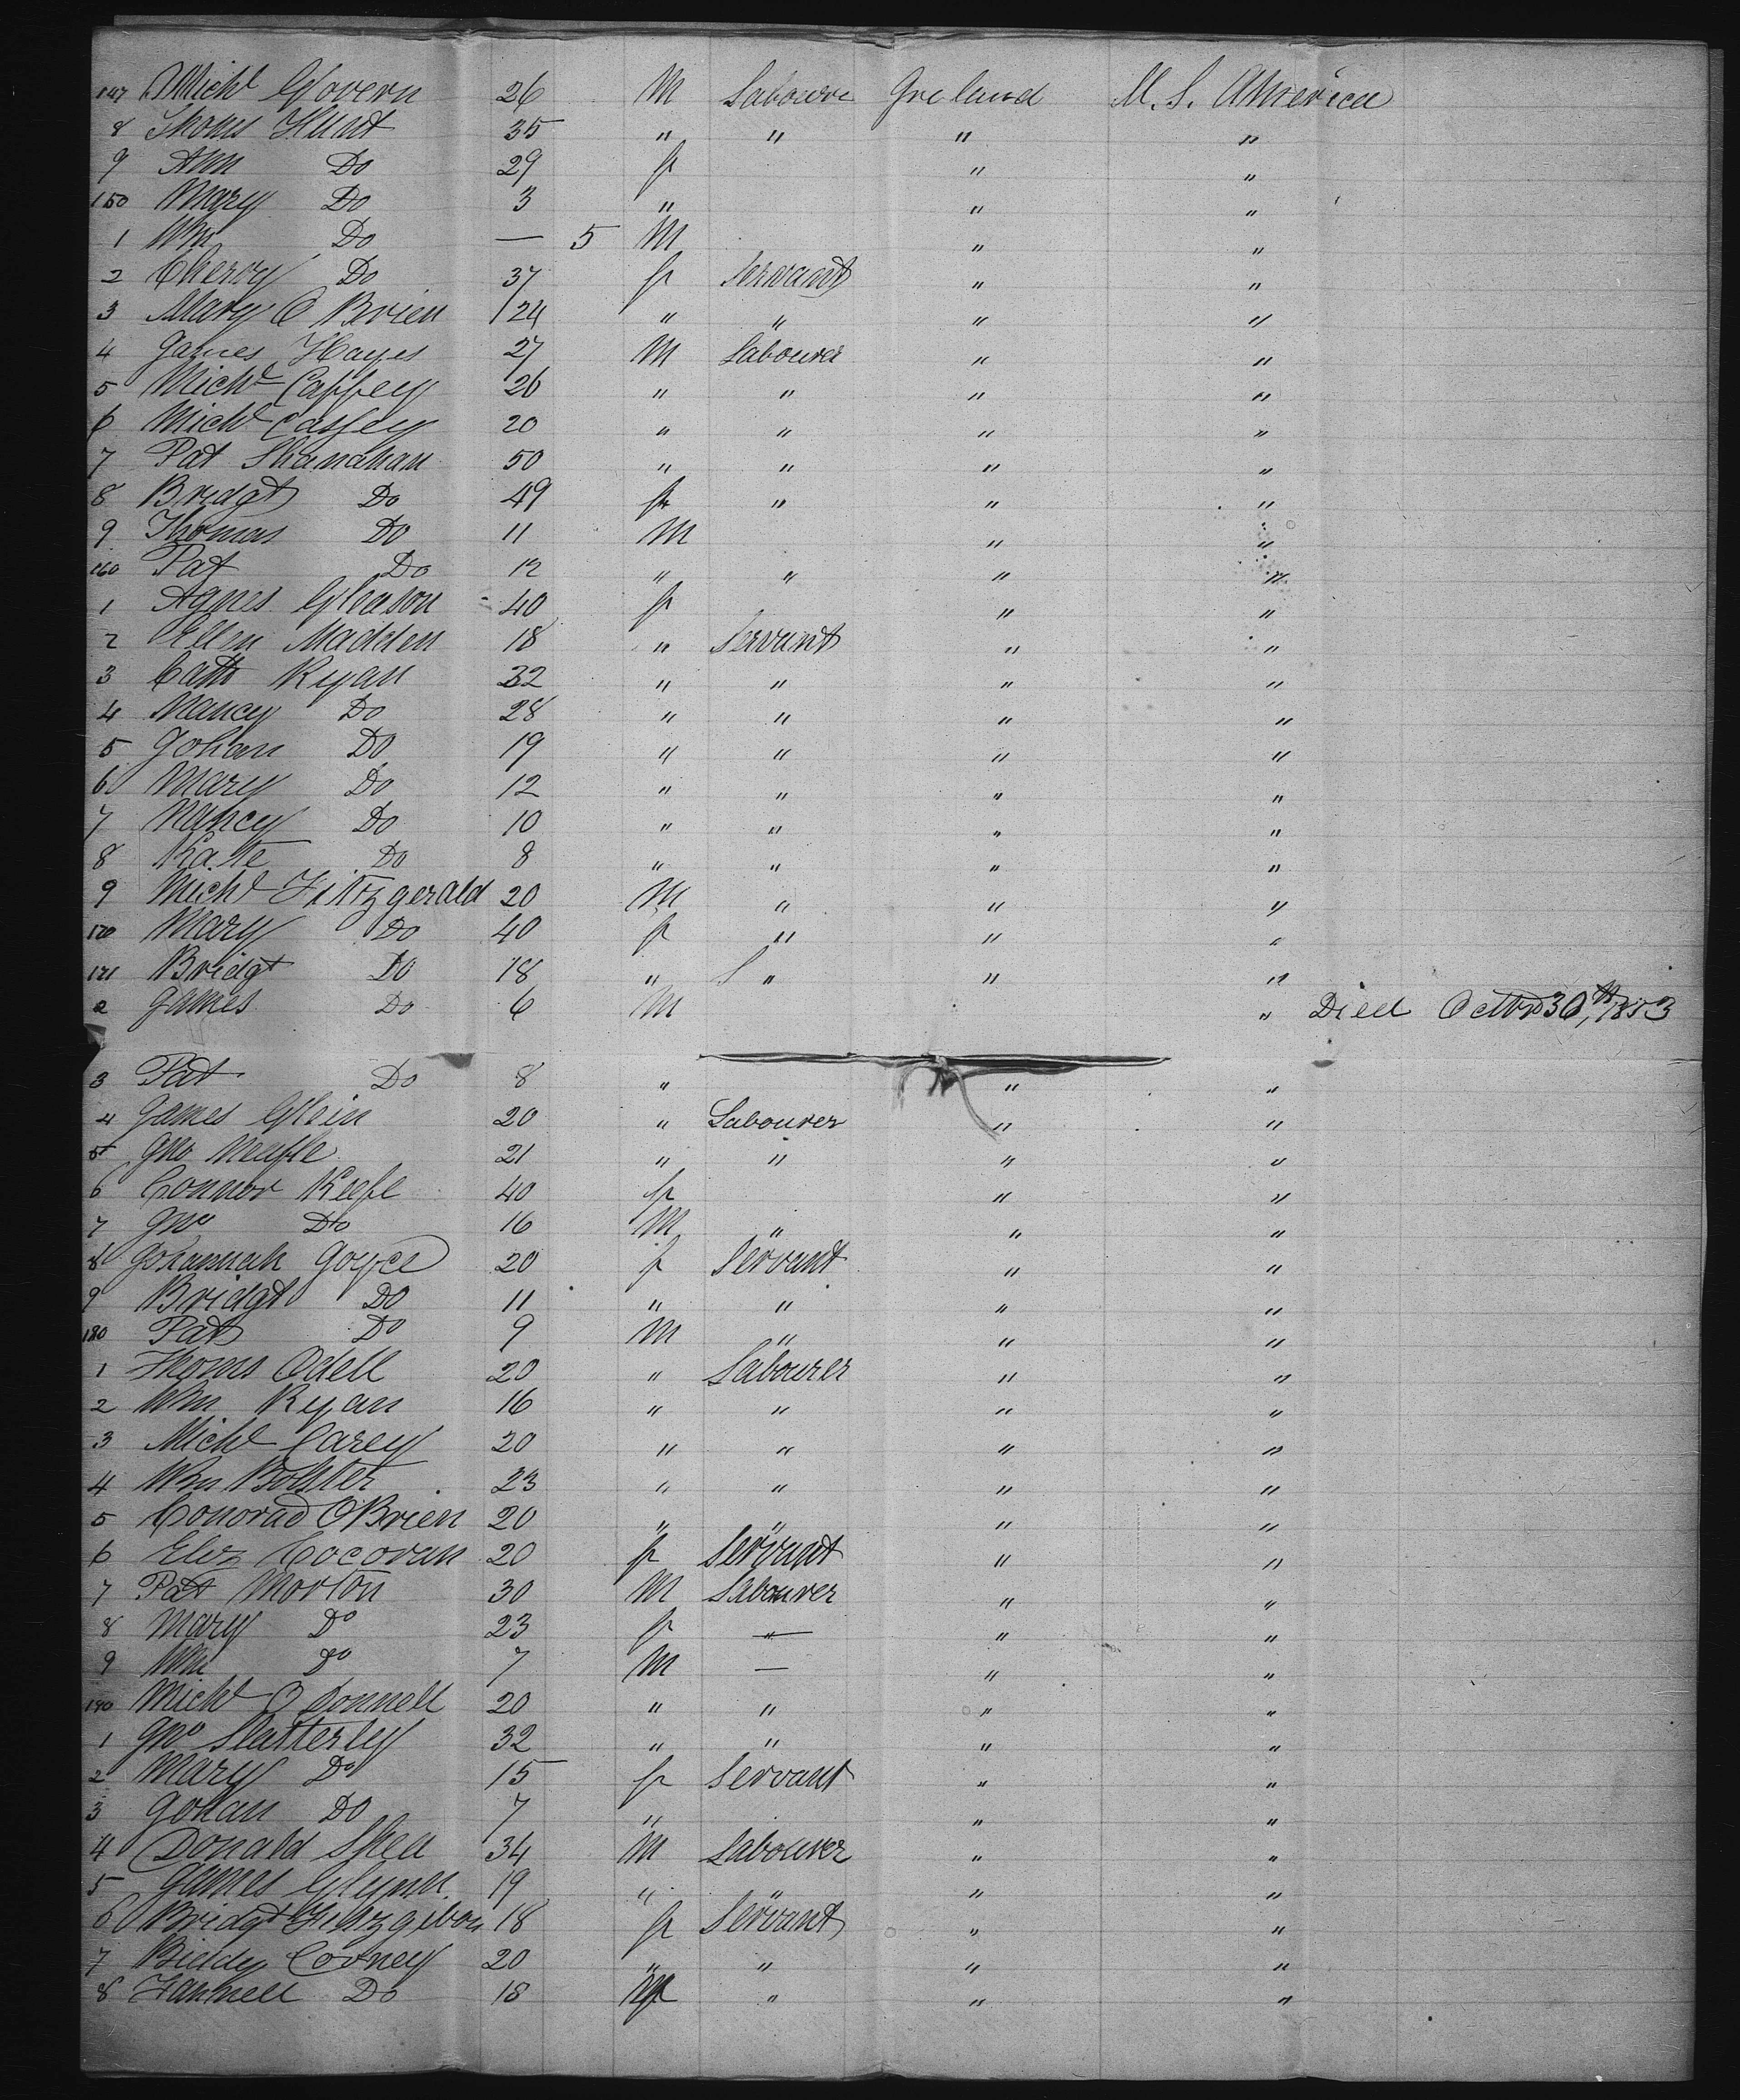 147 Michl Govern 26 M Labourer Ireland U. S. America
8 Thoms Hunt 35 " " " "
9 Ann Do 29 f " "
150 Mary Do 3 " " "
1 Wm Do — 5 M " "
2 Cherry Do 37 f Servant " "
3 Mary O Brien 24 " " " "
4 James Hayes 27 M Labourer " "
5 Michl Caffey 26 " " " "
6 Michl Casfey 20 " " " "
7 Pat Shanahan 50 " " " "
8 Bridgt Do 49 f " " "
9 Thomas Do 11 M " "
160 Pat Do 12 " " " "
1 Agnes Gleason 40 f " "
2 Ellen Madden 18 " Servant " "
3 Cath Ryan 32 " " " "
4 Nancy Do 28 " " " "
5 Johan Do 19 " " " "
6 Mary Do 12 " " " "
7 Nancy Do 10 " " " "
8 Kate Do 8 " " " "
9 Michl Fitzgerald 20 M " " "
170 Mary Do 40 f " " "
171 Bridgt Do 18 " S " " "
2 James Do 6 M " Died Octbr 30th, 1853
3 Pat Do 8 " " "
4 James Glein 20 " Labourer " "
5 Jno 21 " " " "
6 Connor Keefe 40 f " "
7 Jno Do 16 M " " "
8 Johannah Joyce 20 f Servant " "
9 Bridgt Do 11 " " " "
180 Pat Do 9 M " " "
1 Thoms Odell 20 " Labourer " "
2 Wm Ryan 16 " " " "
3 Michl Carey 20 " " " "
4 Wm Bolster 23 " " " "
5 Conorad OBrien 20 " " " "
6 Eliz Cocoran 20 f Servant " "
7 Pat Morton 30 M Labourer " "
8 Mary Do 23 f — " "
9 Wm Do 7 M — " "
190 Michl O Donnell 20 " " " "
1 Jno Slatterley 32 " " " "
2 Mary Do 15 f Servant " "
3 Johan Do 7 " " "
4 Donald Shea 34 M Labourer " "
5 James Glynn 19 " " " "
6 Bridgt Fitzgibon 18 f Servant " "
7 Biddy Cooney 20 " " " "
8 Do 18 f " " "